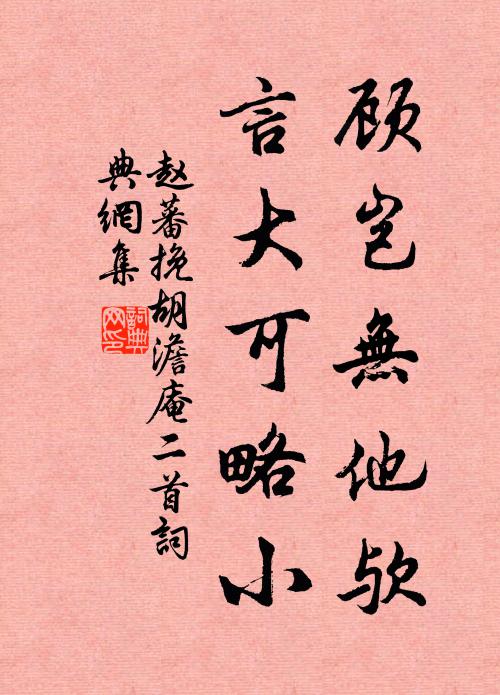 顾岂無他欤
言大可略小
赵蕃挽胡澹庵二首詞
典網集
詞典
网印